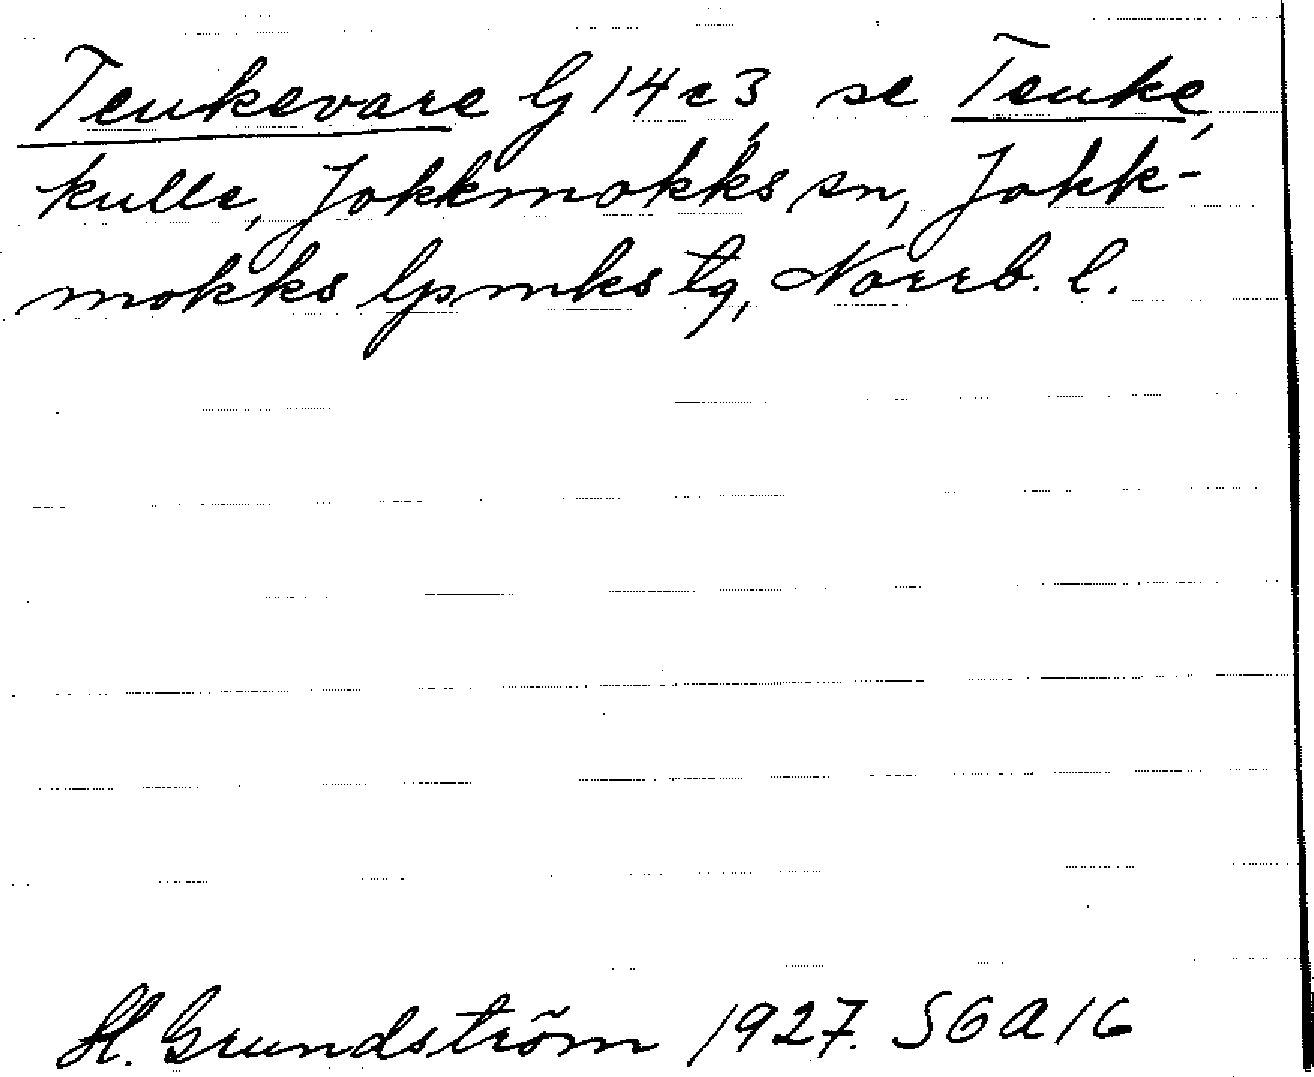 Teukevare G 14 e 3, se Teuke,
kulle, Jokkmokks sn, Jokk-
mokks lpmks tg, Norrb. l.
H. Grundström 1927. SGA16